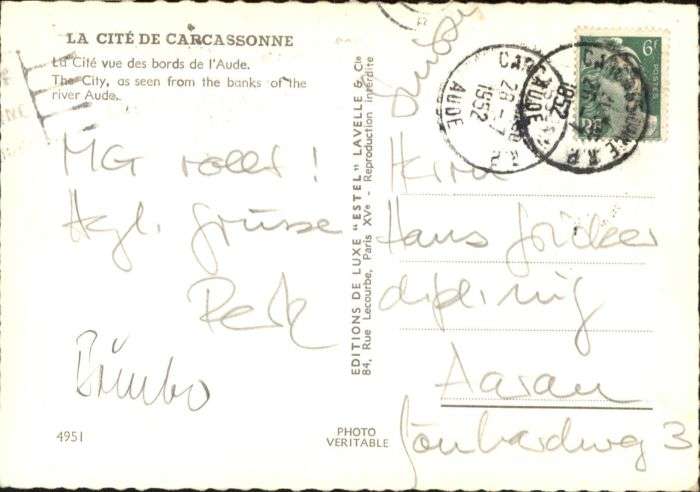 LA CITÉ DE CARCASSONNE
La Cité vue des bords de l'Aude.
The City, as seen from the banks of the
river Aude.
MG rollt!
Hzl. Grüsse
Bimbo
4951
EDITIONS DE LUXE "ESTEL" LAVELLE & Cie
84, Rue Lecourbe, Paris XVe - Reproduction interdite
PHOTO
VERITABLE
6F
CARCASSONNE
28-7
1952
AUDE
Herrn
Hans
dipl. ing
Aarau
Gönhardweg 3